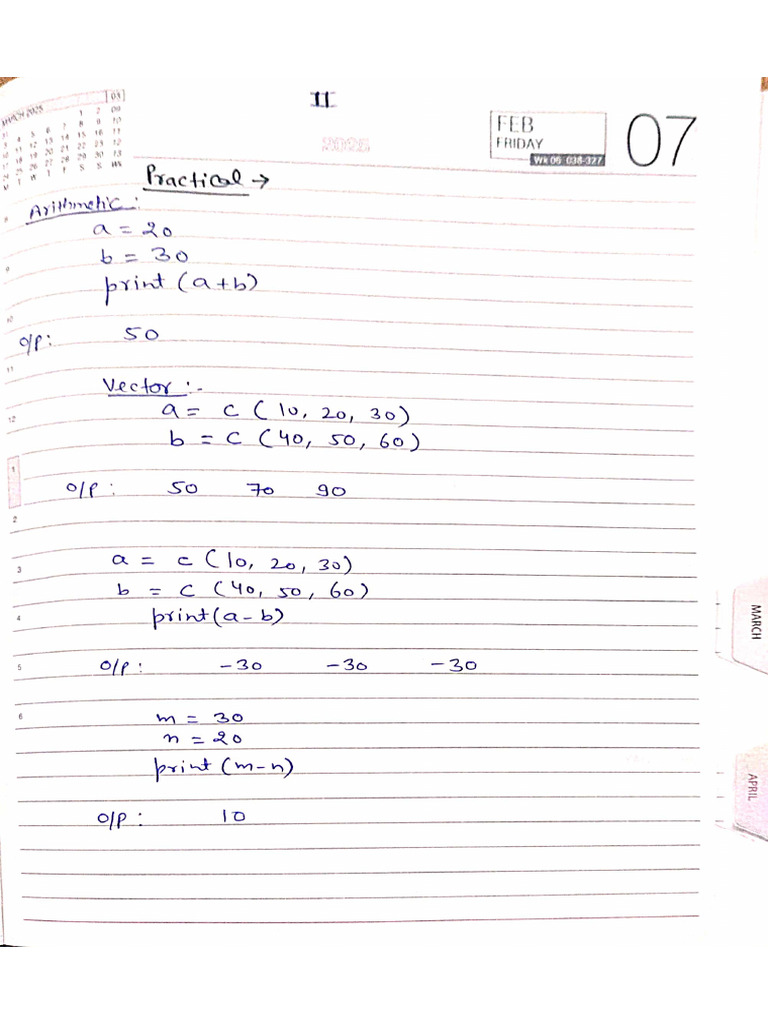 II
MARCH 2025 03
FEB
FRIDAY
Wk 06 038-327
07
Practical →
Arithmetic:
a = 20
b = 30
print (a+b)
O/P: 50
Vector :-
a = c (10, 20, 30)
b = c (40, 50, 60)
O/P: 50 70 90
a = c (10, 20, 30)
b = c (40, 50, 60)
print(a-b)
O/P: -30 -30 -30
m = 30
n = 20
print (m-n)
O/P: 10
9
10
11
12
1
2
3
4
5
6
MARCH
APRIL